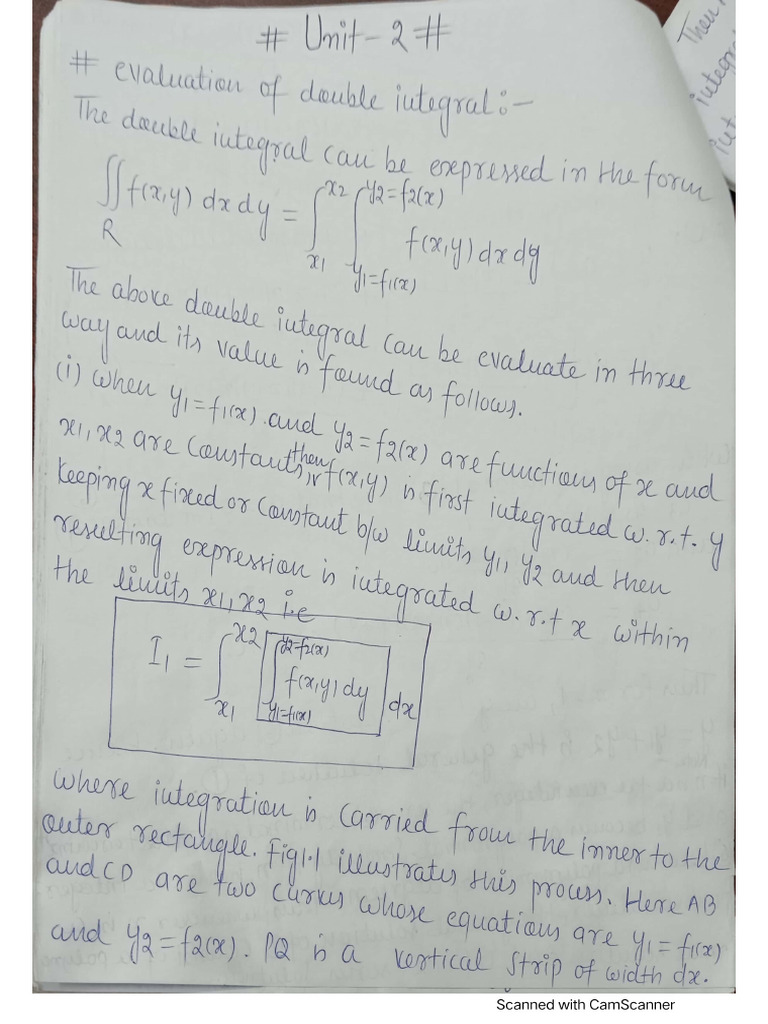 # Unit-2 #
# evaluation of double integral:-
The double integral can be expressed in the form
∬f(x,y) dx dy = ∫x1 x2 ∫y1=f1(x) y2=f2(x) f(x,y) dx dy
R
The above double integral can be evaluate in three
way and its value is found as follows.
(i) when y1=f1(x) and y2=f2(x) are functions of x and
x1, x2 are constants, then f(x,y) is first integrated w.r.t. y
keeping x fixed or constant b/w limits y1, y2 and then
resulting expression is integrated w.r.t x within
the limits x1, x2 i.e
I1 = ∫x1 x2 [∫y1=f1(x) y2=f2(x) f(x,y) dy] dx
where integration is carried from the inner to the
outer rectangle. Fig 1.1 illustrates this process. Here AB
and CD are two curves whose equations are y1=f1(x)
and y2=f2(x). PQ is a vertical strip of width dx.
Then
Scanned with CamScanner